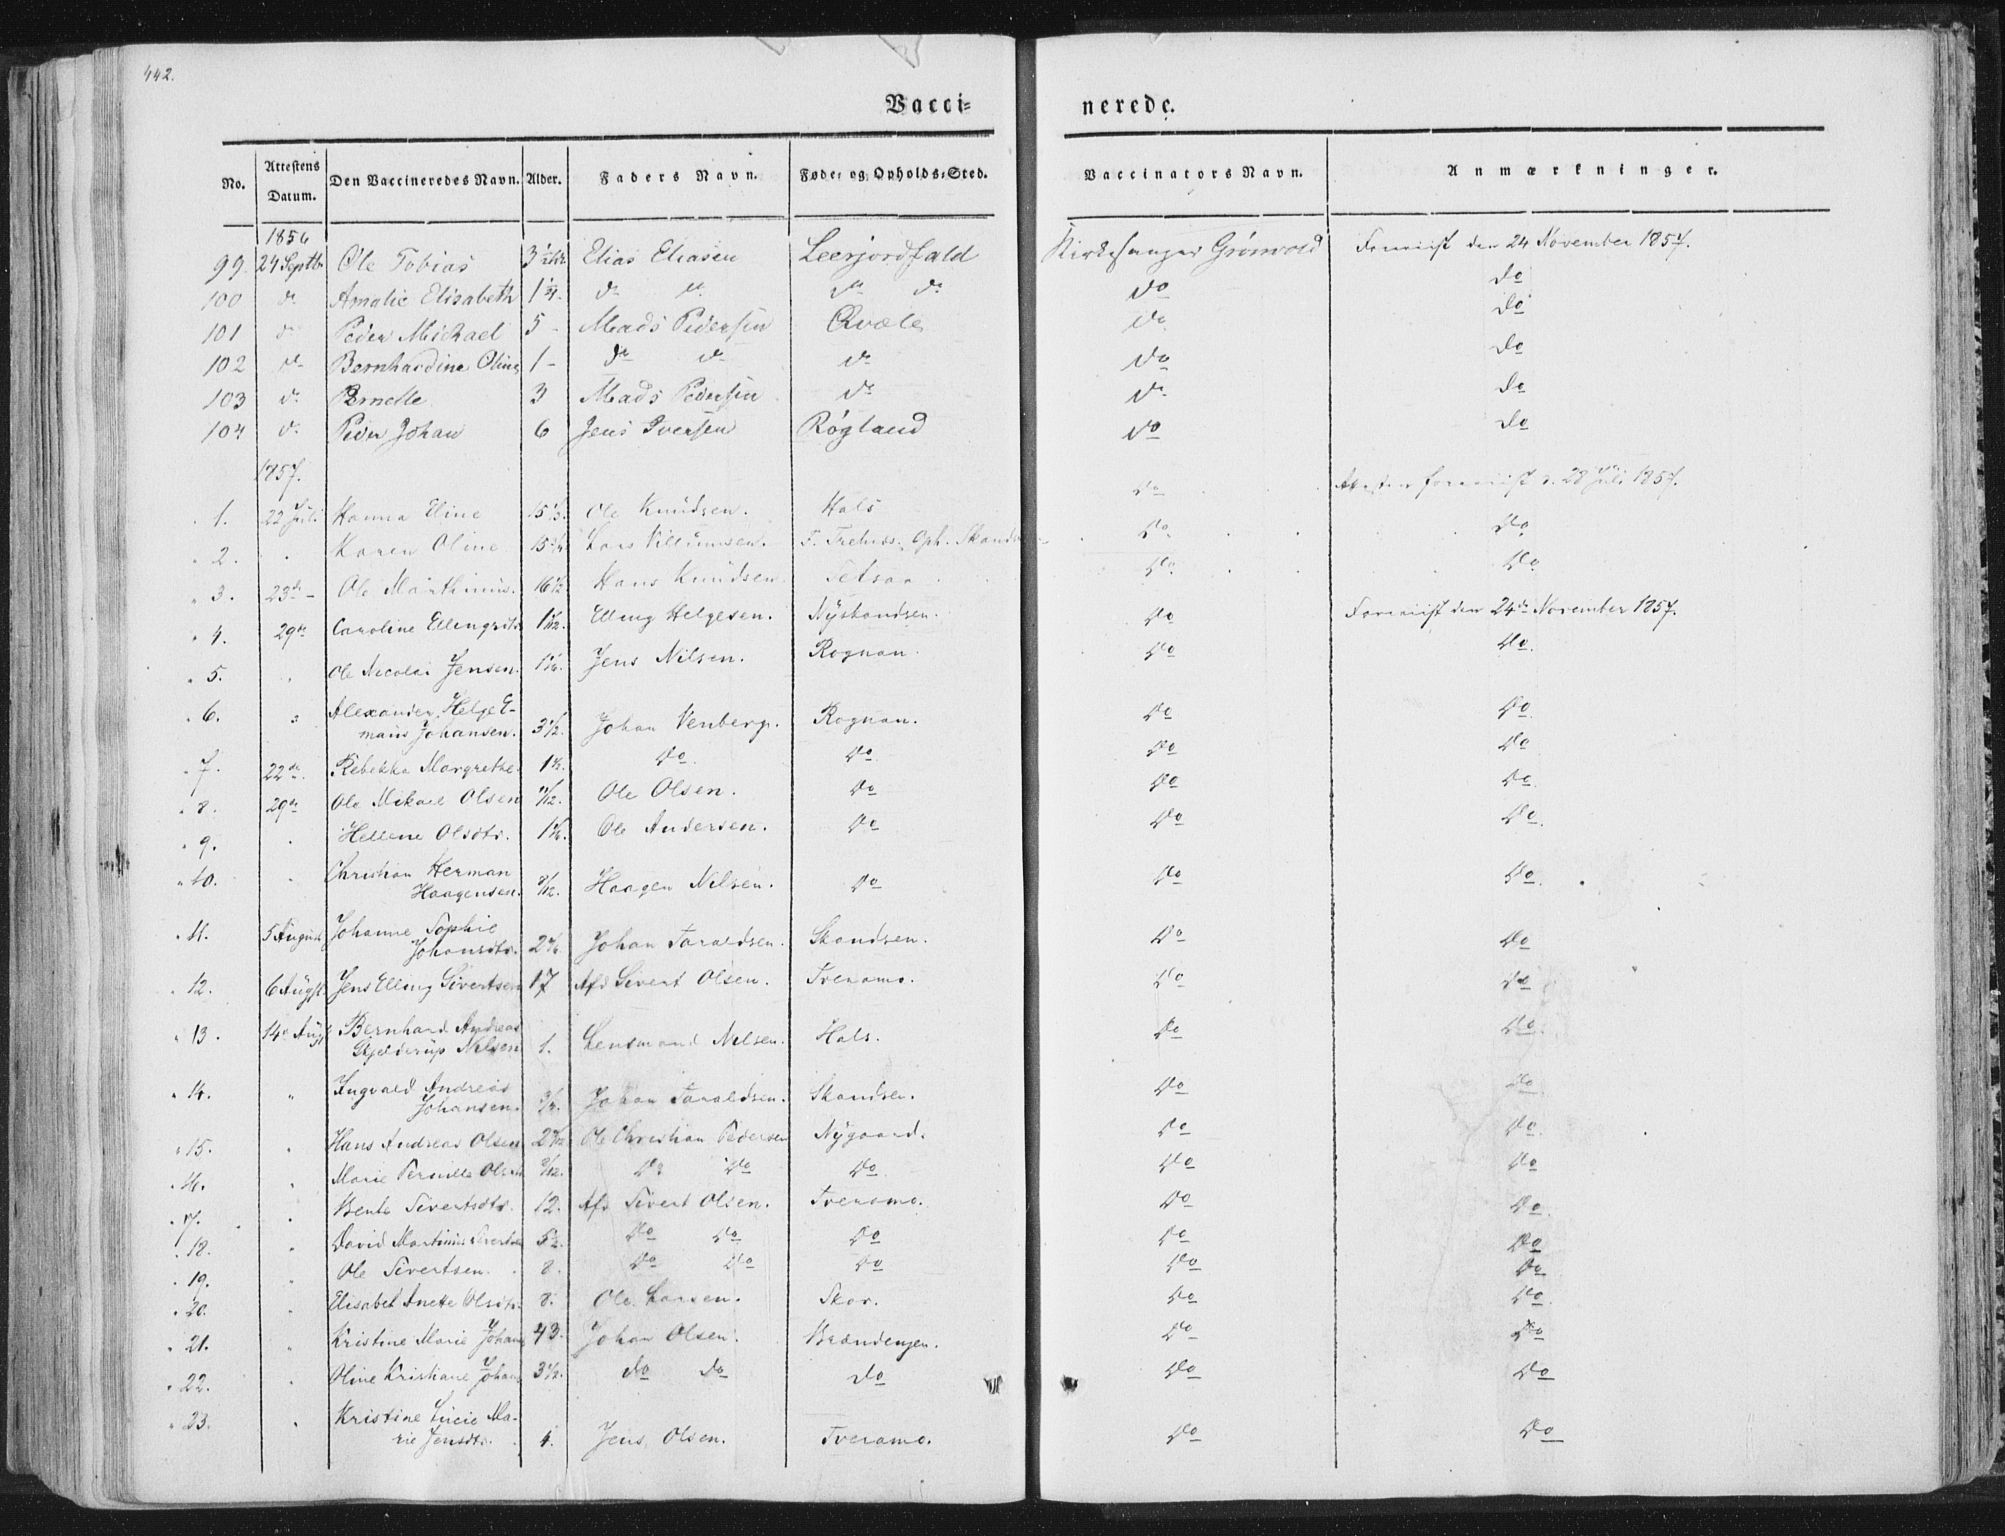 442.
Vacci= nerede.
No. Attestens Datum. Den Vaccineredes Navn. Alder. Faders Navn. Føde= og Opholds=Sted. Vaccinators Navn. Anmærkninger.
1856
99. 24 Septbr Ole Tobias 3 Elias Eliasen Leerjordfald Kirkesanger Grönvold den 24 November 1857.
100 do Amalie Elisabeth 1 3/4. do do do do do do
101 do Peder Michael 5 - Mads Pedersen Qvæle do do
102 do Bernhardine Oline 1 - do do do do do
103 do Pernelle 3 Mads Pedersen do do do
104 do Peder Johan 6 Jens Iversen Røgland do do
1857.
1. 22 Juli Hanna Eline 15 1/3. Ole Knudsen. Hals do 28 Juli 1857.
" 2. " Karen Oline 15 3/4 Lars Villumsen. F. Oph. do do
" 3. 23de - Ole Marthinus. 16 1/2 Hans Knudsen do. do
" 4. 29de Caroline Ellingsdtr 1 Elling Helgesen. Nyskandsen. do den 24de November 1857.
" 5. " Ole Nicolai Jensen. 1 Jens Nilsen. Rognan. do do.
" 6. " Alexander Helge E-
maus Johansen. 3 1/2. Johan Venberg. Rognan. do do.
" 7. 22de Rebekka Margrethe. 1 1/2. do. do. do do.
" 8. 29de Ole Mikael Olsen 11/12. Ole Olsen. do do do.
" 9. " Hellene Olsdtr. 1 Ole Andersen. do do do.
" 10. " Christian Herman
Haagensen. 8/12. Haagen Nilsen. do do do.
" 11. 5 August Johanne Sophie
Johansdtr. 2 Johan Taraldsen. Skandsen. do do
" 12. 6 Augst. Jens Elling Sivertsen 17 Afd Sivert Olsen. Tveramo. do do
" 13. 14de Augst Bernhard Andreas
Gjelderup Nilsen 1. Lensmand Nilsen. Hals. do do.
" 14. " Ingvald Andreas
Johansen. Johan Taraldsen. Skandsen. do do.
" 15. " Hans Andreas Olsen 2 Ole Christian Pedersen Nygaard. do do.
" 16. " Marie Pernille Olsdtr 9/12. do do do do do
" 17. " Bente Sivertsdtr. 12. Afd Sivert Olsen. Tveramo. do do.
" 18. " David Martinus Sivertsen 5 1/2. do do do do do
" 19. " Ole Sivertsen. 8. do do do do do
" 20. " Elisabet Anette Olsdtr. 8. Ole Larsen. Skar. do do.
" 21. " Kristine Marie Johans Johan Olsen. Brændengen. do do
" 22. " Oline Kristiane Johans 3 1/2. do do do do do
" 23. " Kristine Lucie Ma-
rie Jensdtr. 4. Jens Olsen. Tveramo. do do